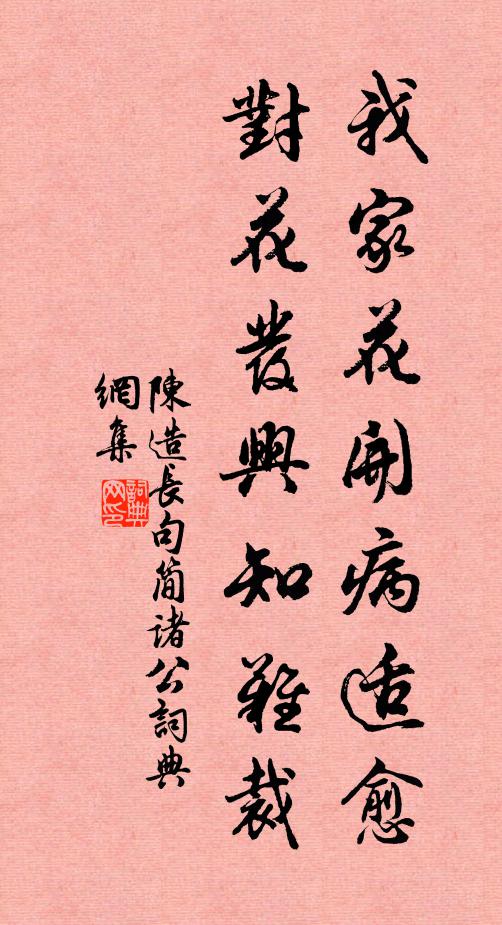 我家花開病适愈
對花發興知難裁
陳造長句簡諸公詞典
網集
詞典網印